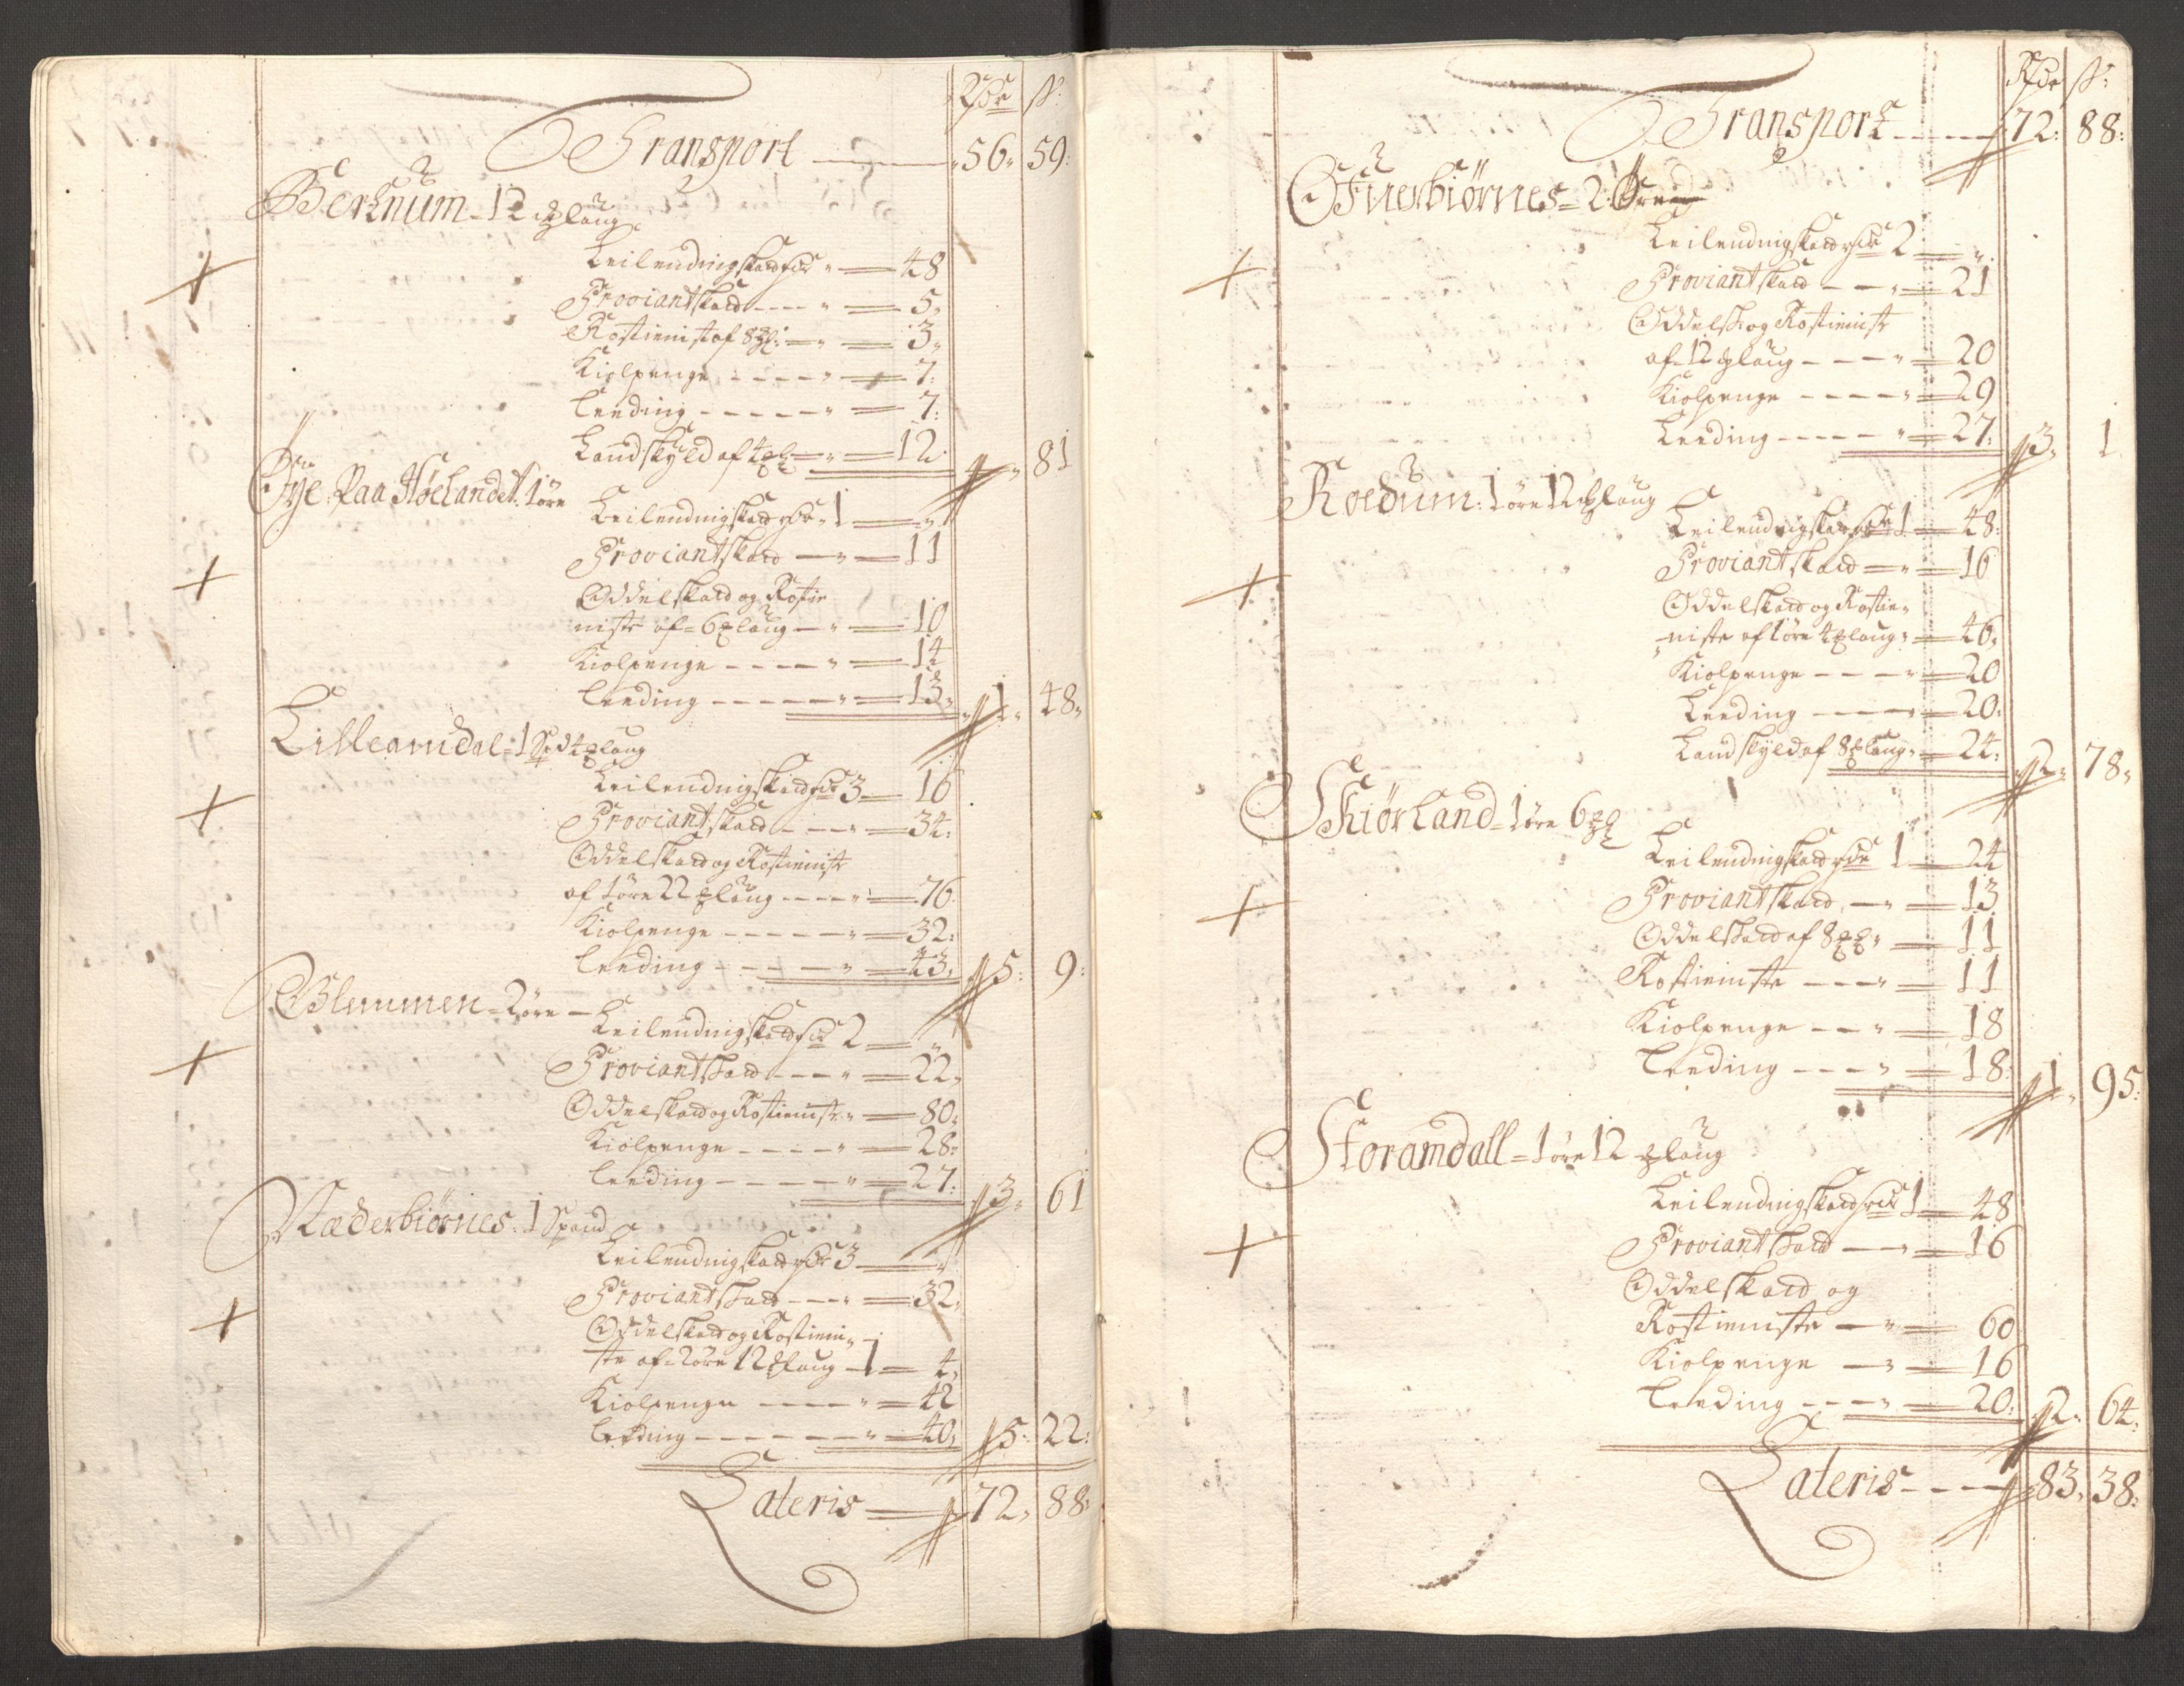 Rdr ß:
Transport 56„ 59:
Berknum - 12 Mklaug
Leilendingskard Rdr „ 48
Proviantskatt „ 5„
Rostienist af 8 Mkl: „ 3„
Kiolpenge „ 7:
Leeding „ 7:
Landskyld af 4 Mkl „ 12: 81
Øye Paa Høelandet 1 øre
Leilendingskatt Rdr 1 „
Proviantskatt „ 11
Oddelskatt og Rostie
niste af 6 Mklaug „ 10
Kiolpenge „ 14
Leeding „ 13„ 1„ 48„
Lilleamdal 1 Spd 4 Mklaug
Leilendingskatt Rdr 3 16
Proviantskatt „ 34:
Oddelskatt og Rostienist
af 1 øre 22 Mklaug „ 76
Kiolpenge „ 32:
Leeding „ 43„ 5: 9:
Glemmen - 2 øre
Leilendingskatt Rdr 2 „
Proviantskatt „ 22„
Oddelskatt og Rostieniste „ 80„
Kiolpenge „ 28:
Leeding „ 27: 3„ 61
Næderbiørnes: 1 Spand
Leilendingskatt Rdr 3 „
Proviantskatt „ 32„
Oddelskatt og Rostieni„
ste af 2 øre 12 Mklaug 1 4„
Kiolpenge „ 42
Leeding „ 40„ 5: 22:
Lateris 72„ 88:
Rdr ß:
Transport 72: 88:
Øfuerbiørnes - 2
Leilendingskatt Rdr 2 „
Proviantskatt „ 21
Oddelsk: og Rostienist
af 12 Mklaug „ 20
Kiolpenge „ 29
Leeding „ 27: 3„ 1
Roedum: 1 øre 12 Mklaug
Leilendingskatt Rdr 1 48:
Proviantskatt „ 16
Oddelskatt og Rostie„
niste af 1 øre 4 Mklaug „ 46„
Kiolpenge „ 20
Leeding „ 20:
Landskyld af 8 Mklaug „ 24: 2„ 78„
Skiørland - 1 øre 6 Mkl
Leilendingskatt Rdr 1 24
Proviantskatt „ 13
Oddelskatt af 8 Mkl „ 11
Rostieniste „ 11
Kiolpenge „ 18
Leeding „ 18: 1„ 95:
Storamdall - 1 øre 12 Mklaug
Leilendingskatt Rdr 1 48
Proviantskatt „ 16
Oddelskatt og
Rostieniste „ 60
Kiolpenge „ 16
Leeding „ 20: 2„ 64:
Lateris 83„ 38: